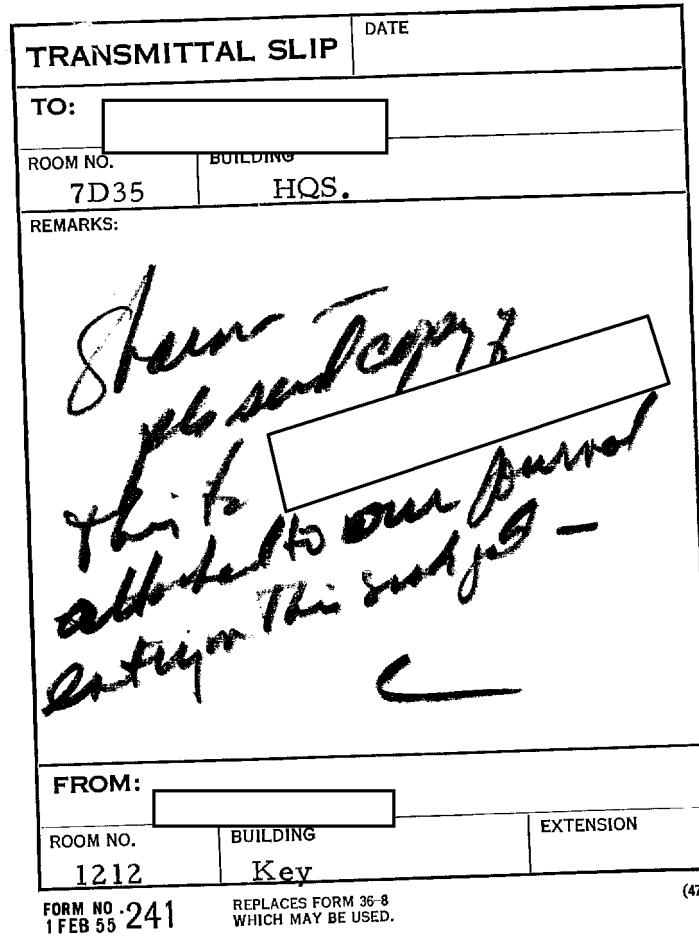 TRANSMITTAL SLIP
DATE
TO:
ROOM NO.
7D35
BUILDING
HQS.
REMARKS:
pls send copy of
this to
attached to our journal
entry on this
FROM:
ROOM NO.
1212
BUILDING
Key
EXTENSION
FORM NO. 241
1 FEB 55
REPLACES FORM 36-8
WHICH MAY BE USED.
(47